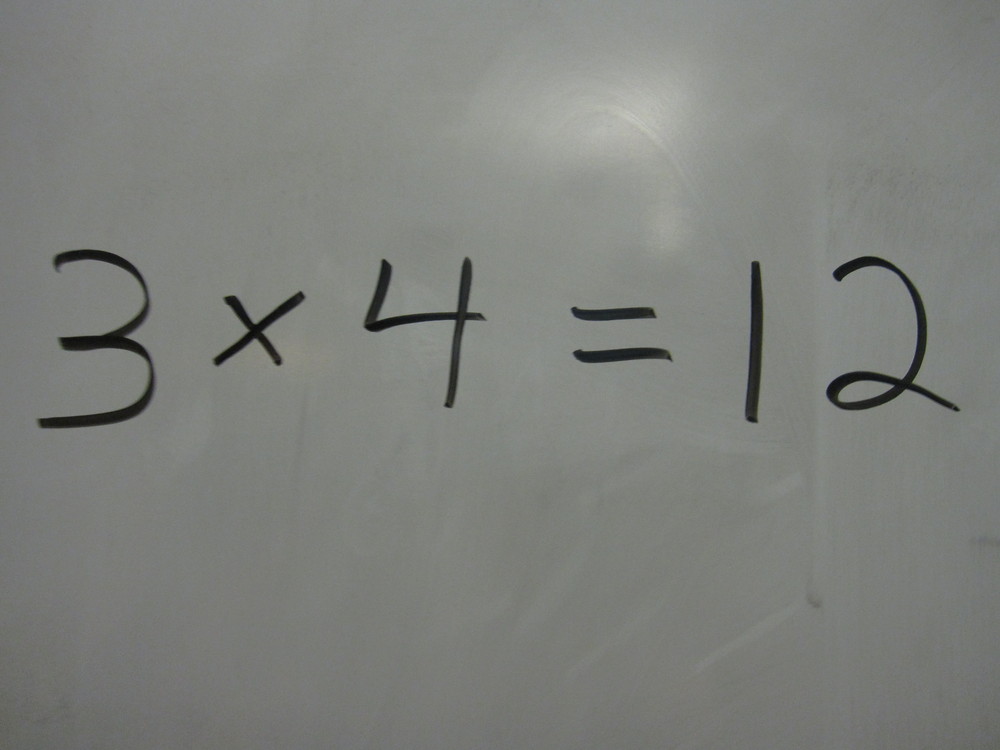 3 × 4 = 12